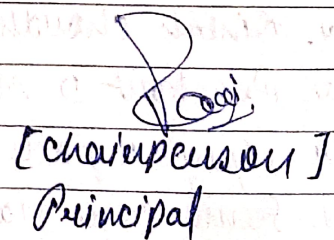 [Chairperson]
Principal